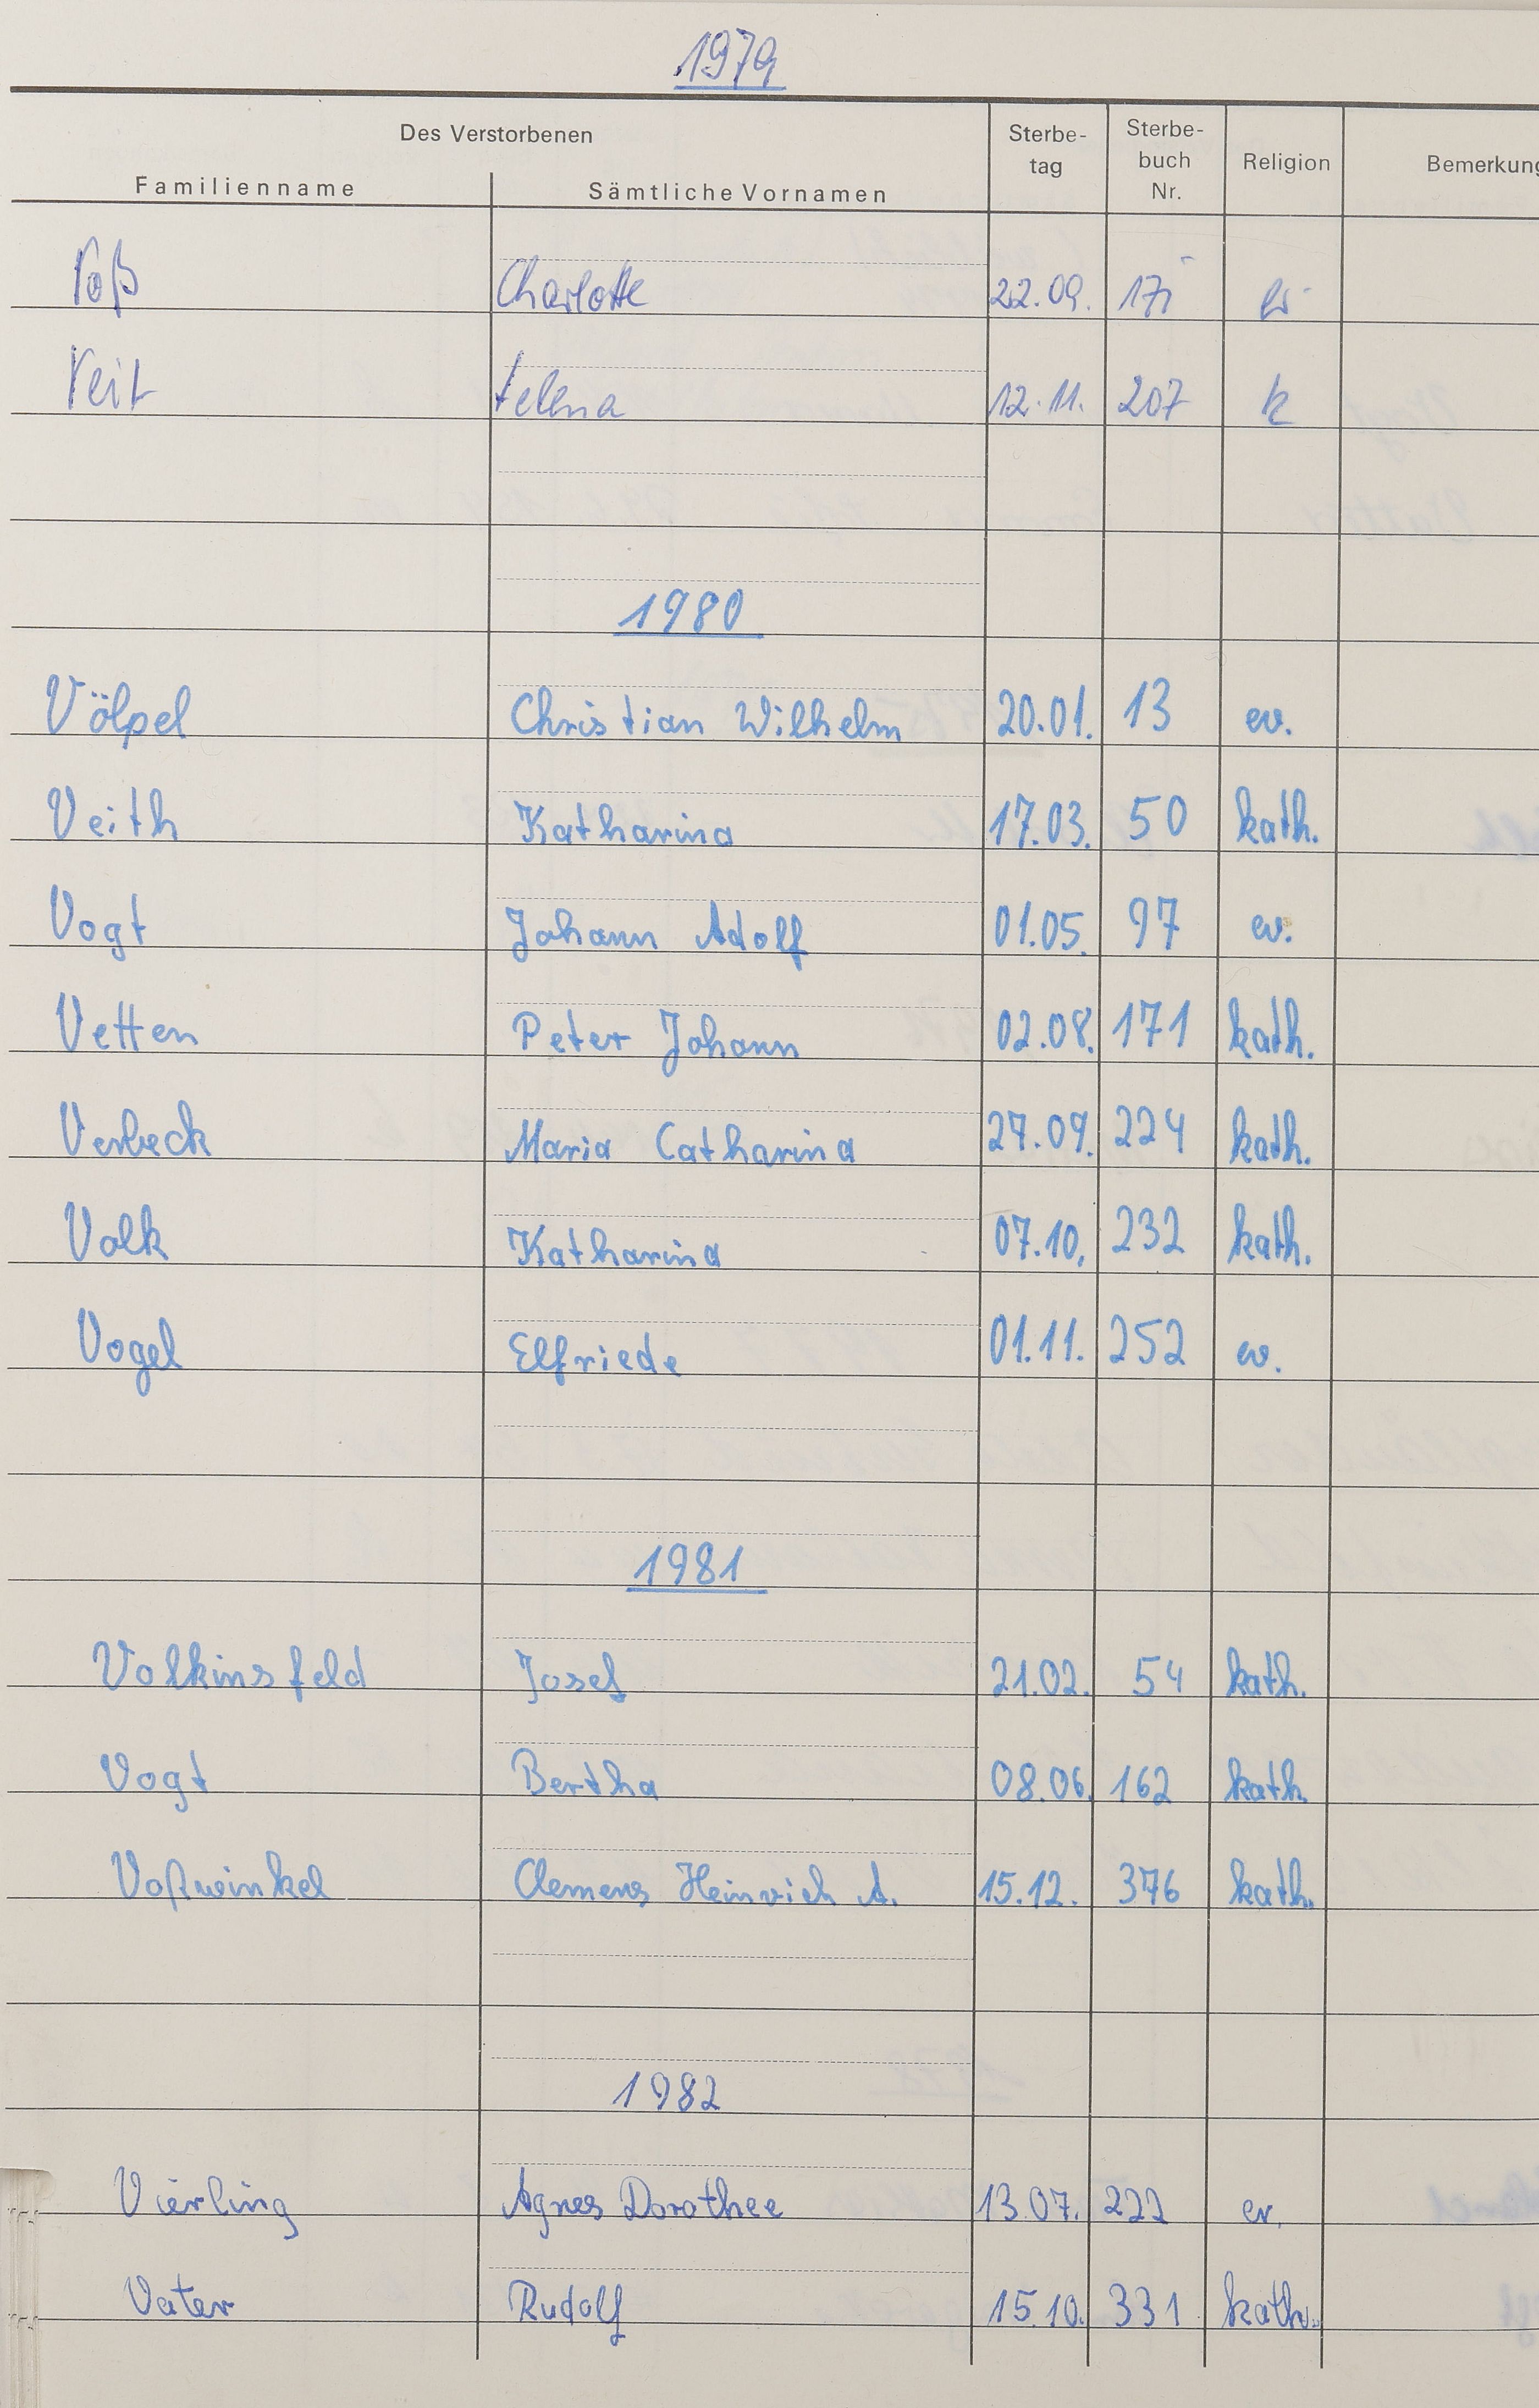 1979
Des Verstorbenen
Familienname Sämtliche Vornamen Sterbe-tag Sterbe-buch Nr. Religion Bemerkung
Voß Charlotte 22.09. ev
Veit Helena 12.11. 207 k
1980
Völpel Christian Wilhelm 20.01. 13 ev.
Veith Katharina 17.03. 50 kath.
Vogt Johann Adolf 01.05. 97 ev.
Vetten Peter Johann 02.08. 171 kath.
Verbeck Maria Catharina 27.09. 224 kath.
Volk Katharina 07.10. 232 kath.
Vogel Elfriede 01.11. 252 ev.
1981
Volkinsfeld Josef 21.02. 54 kath.
Vogt Bertha 08.06. 162 kath.
Voßwinkel Clemens Heinrich A. 15.12. 376 kath.
1982
Vierling Agnes Dorothee 13.07. 222 ev.
Vater Rudolf 15.10. 331 kath.